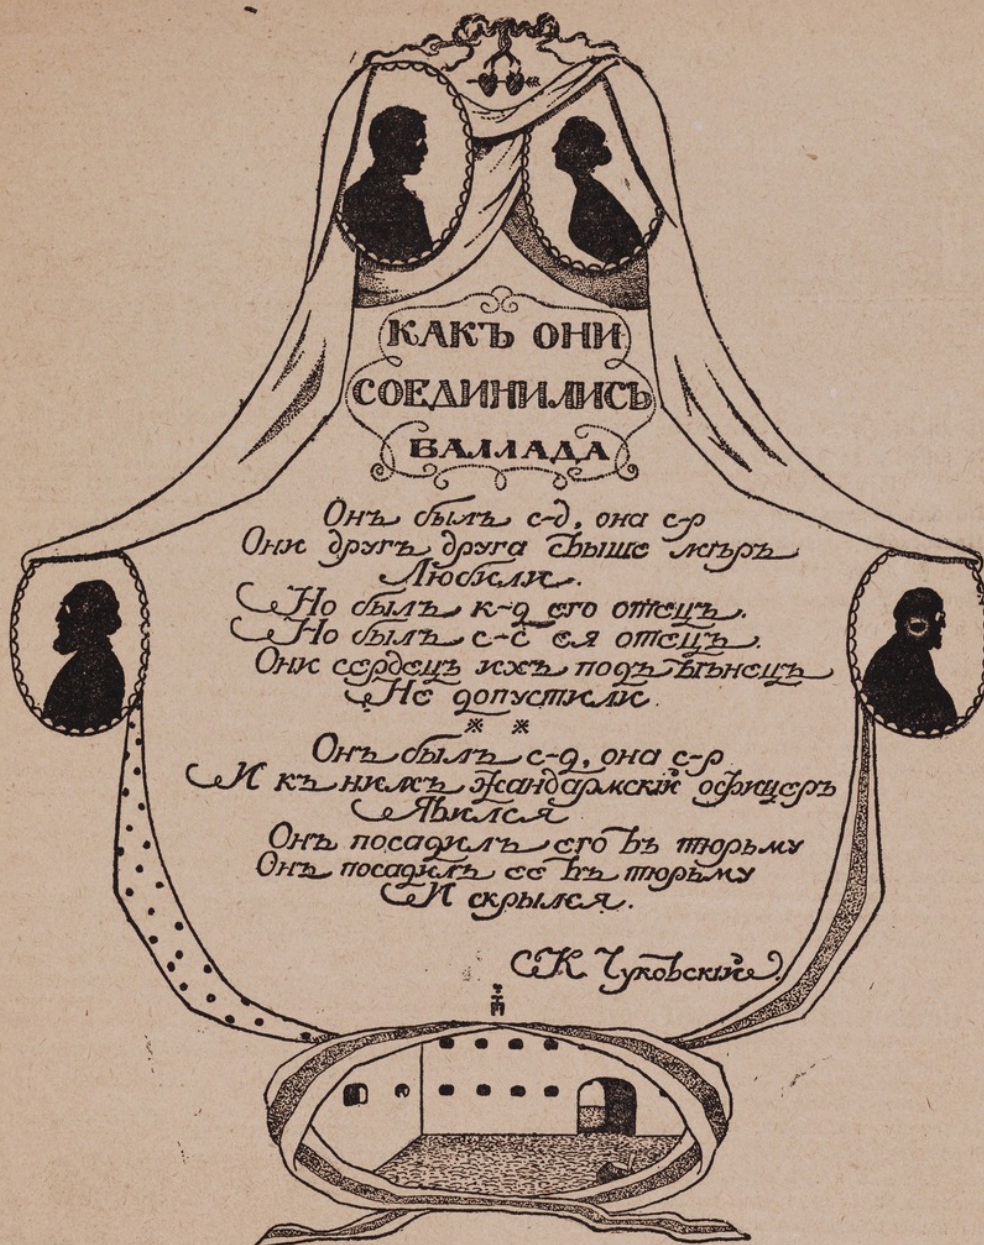 КАКЪ ОНИ
СОЕДИНИЛИСЬ
БАЛЛАДА
Онъ былъ с-д, она с-р
Они другъ друга свыше мѣръ
Любили.
Но былъ к-д его отецъ.
Но былъ с-с ея отецъ.
Они сердецъ ихъ подъ вѣнецъ
Не допустили.
※ ※
Онъ былъ с-д, она с-р
И къ нимъ жандармскій офицеръ
Явился
Онъ посадилъ его въ тюрьму
Онъ посадилъ ее въ тюрьму
И скрылся.
К Чуковскій.